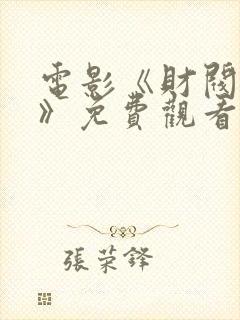 電影《財閥
》免費觀看
張荣鋒